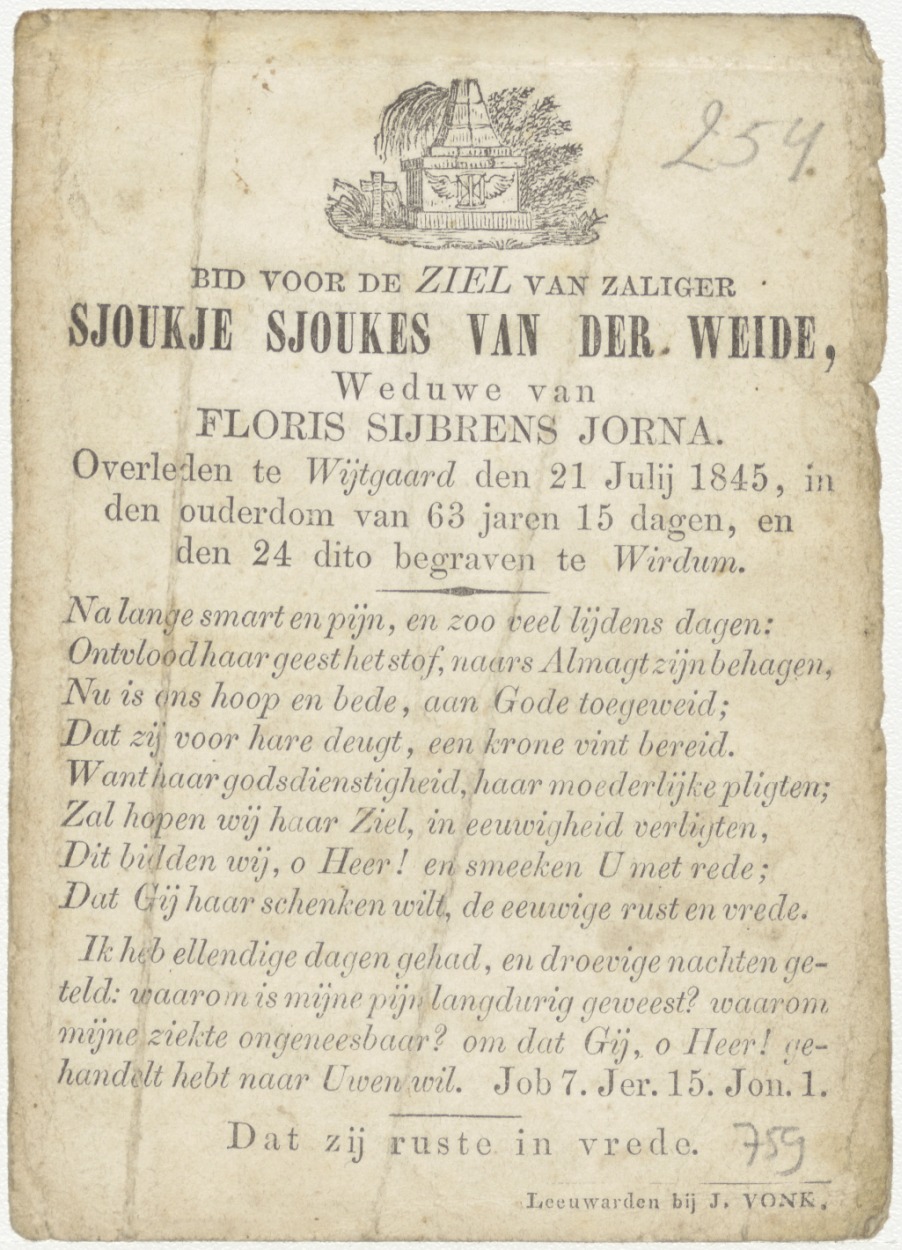 254.
BID VOOR DE ZIEL VAN ZALIGER
SJOUKJE SJOUKES VAN DER WEIDE,
Weduwe van
FLORIS SIJBRENS JORNA.
Overleden te Wijtgaard den 21 Julij 1845, in
den ouderdom van 63 jaren 15 dagen, en
den 24 dito begraven te Wirdum.
Na lange smart en pijn, en zoo veel lijdens dagen:
Ontvlood haar geest het stof, naars Almagt zijn behagen,
Nu is ons hoop en bede, aan Gode toegeweid;
Dat zij voor hare deugt, een krone vint bereid.
Want haar godsdienstigheid, haar moederlijke pligten;
Zal hopen wij haar Ziel, in eeuwigheid verligten,
Dit bidden wij, o Heer! en smeeken U met rede;
Dat Gij haar schenken wilt, de eeuwige rust en vrede.
Ik heb ellendige dagen gehad, en droevige nachten ge-
teld: waarom is mijne pijn langdurig geweest? waarom
mijne ziekte ongeneesbaar? om dat Gij, o Heer! ge-
handelt hebt naar Uwen wil. Job 7. Jer. 15. Jon. 1.
Dat zij ruste in vrede. 759
Leeuwarden bij J. VONK.